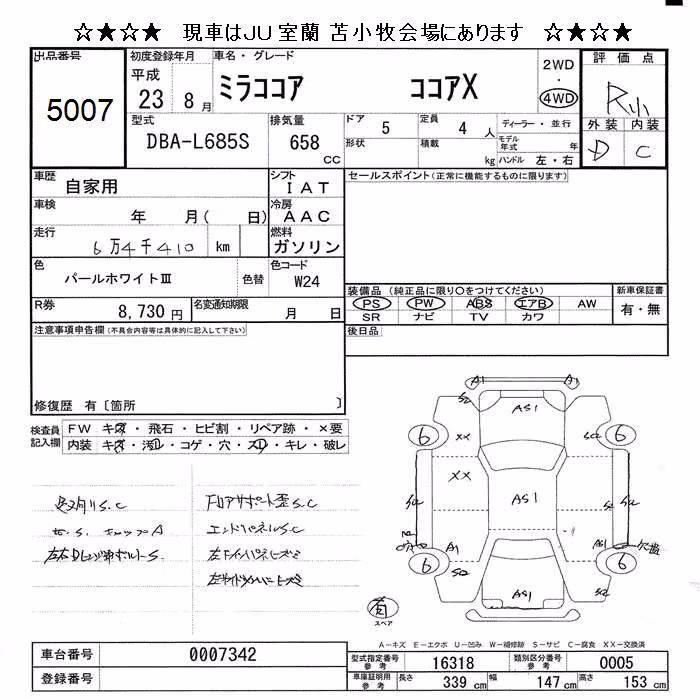 ☆★☆★ 現車はJU室蘭 苫小牧会場にあります ☆★☆★
出品番号 初度登録年月 車名・グレード 評価点
5007 平成 23 8月 ミラココア ココアX 2WD・4WD R小
型式 排気量 ドア 定員 ディーラー・並行 外装 内装
DBA-L685S 658 CC 5 4人 モデル年式 年 D C
形状 積載 kg ハンドル 左・右
車歴 自家用 シフト IAT セールスポイント(正常に機能するものに限ります)
車検 年 月( 日) 冷房 AAC
走行 6万4千410 km 燃料 ガソリン
色 パールホワイトⅢ 色替 色コード W24
装備品 (純正品に限り○をつけてください) 新車保証書
R券 8,730円 名変通知期限 月 日 PS PW ABS エアB AW 有・無
SR ナビ TV カワ
注意事項申告欄(不具合内容等は具体的に記入して下さい) 後日品
修復歴 有〔箇所 〕
検査員記入欄 FW キズ・飛石・ヒビ割・リペア跡・×要
内装 キズ・汚レ・コゲ・穴・スレ・キレ・破レ
フロアサポート歪S.C
エンドパネルS.C
A1 A1
AS1
6 6
XX
XX
AS1
A1 AS1 欠品
6 6
AS1
有
スペア
A-キズ E-エクボ U-凹み W-補修跡 S-サビ C-腐食 XX-交換済
車台番号 0007342 型式指定番号 参考 16318 類別区分番号 参考 0005
登録番号 車庫証明用 参考 長さ 339cm 幅 147cm 高さ 153cm